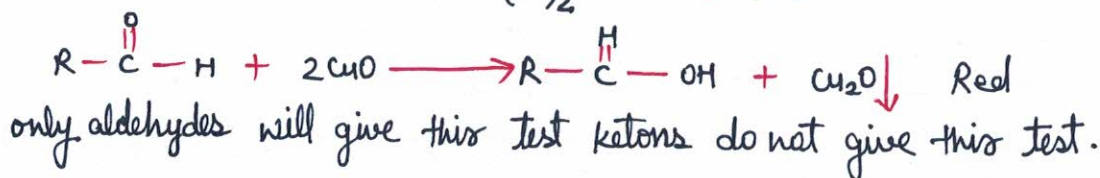 O H
R — C — H + 2CuO ⟶ R — C — OH + Cu₂O↓ Red
only aldehydes will give this test ketons do not give this test.